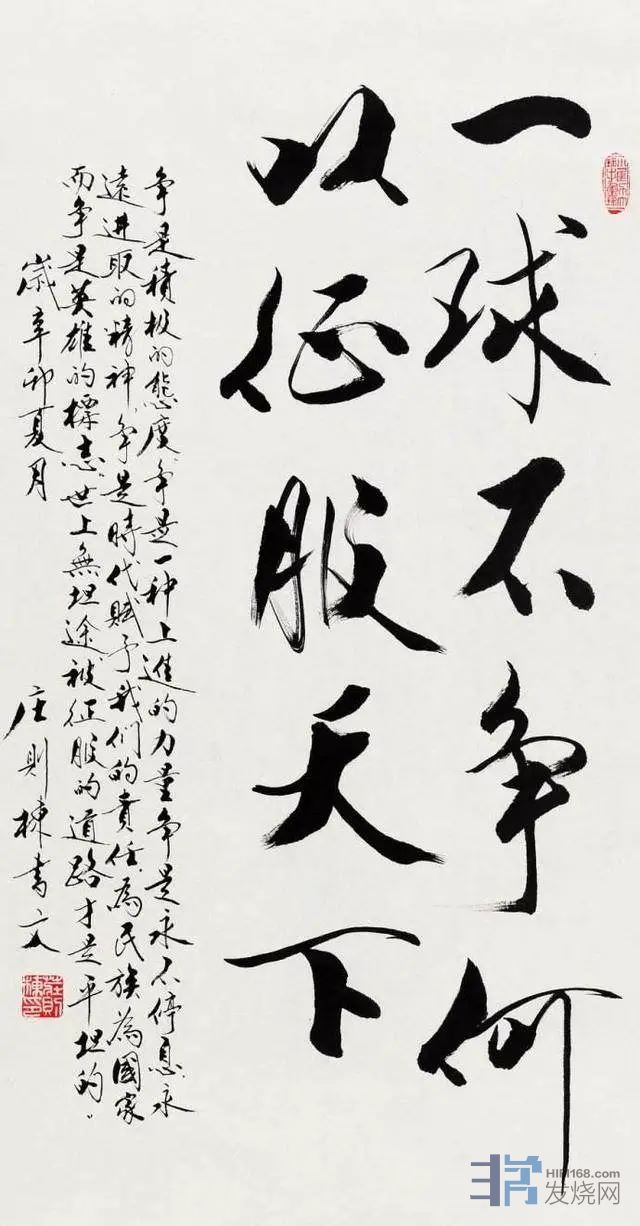 一球不争何
以征服天下
争是積极的態度争是一种上進的力量争是永不停息永
遠進取的精神争是時代赋予我们的責任為民族為國家
而争是英雄的標志世上無坦途被征服的道路才是平坦的
歲辛卯夏月
庄则棟書文
莊則棟印
HIFI168.com
发烧网